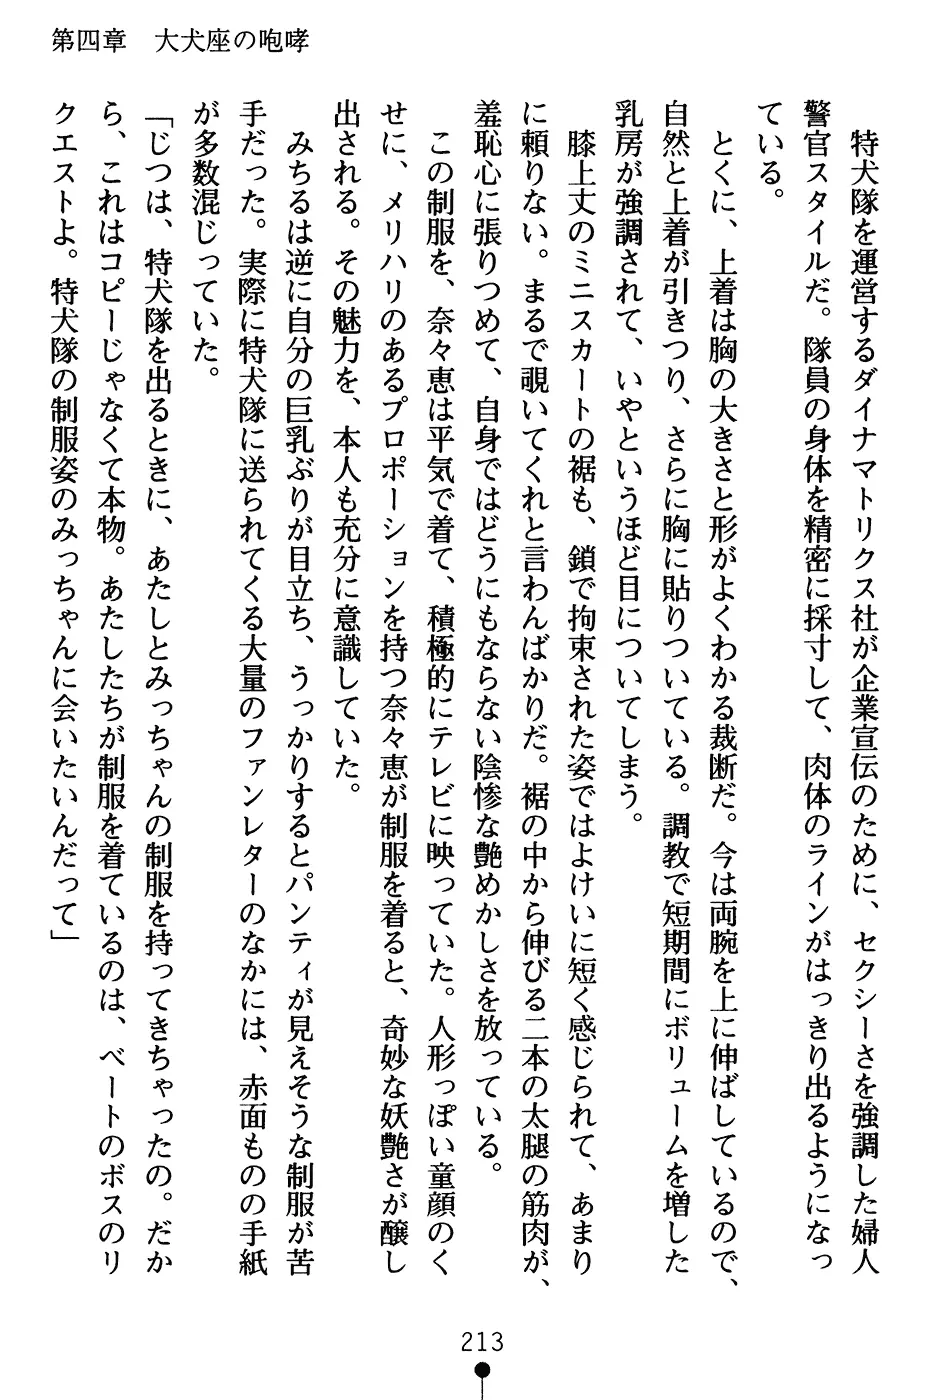 第四章　大犬座の咆哮
特犬隊を運営するダイナマトリクス社が企業宣伝のために、セクシーさを強調した婦人
警官スタイルだ。隊員の身体を精密に採寸して、肉体のラインがはっきり出るようになっ
ている。
とくに、上着は胸の大きさと形がよくわかる裁断だ。今は両腕を上に伸ばしているので、
自然と上着が引きつり、さらに胸に貼りついている。調教で短期間にボリュームを増した
乳房が強調されて、いやというほど目についてしまう。
膝上丈のミニスカートの裾も、鎖で拘束された姿ではよけいに短く感じられて、あまり
に頼りない。まるで覗いてくれと言わんばかりだ。裾の中から伸びる二本の太腿の筋肉が、
羞恥心に張りつめて、自身ではどうにもならない陰惨な艶めかしさを放っている。
この制服を、奈々恵は平気で着て、積極的にテレビに映っていた。人形っぽい童顔のく
せに、メリハリのあるプロポーションを持つ奈々恵が制服を着ると、奇妙な妖艶さが醸し
出される。その魅力を、本人も充分に意識していた。
みちるは逆に自分の巨乳ぶりが目立ち、うっかりするとパンティが見えそうな制服が苦
手だった。実際に特犬隊に送られてくる大量のファンレターのなかには、赤面ものの手紙
が多数混じっていた。
「じつは、特犬隊を出るときに、あたしとみっちゃんの制服を持ってきちゃったの。だか
ら、これはコピーじゃなくて本物。あたしたちが制服を着ているのは、ベートのボスのリ
クエストよ。特犬隊の制服姿のみっちゃんに会いたいんだって」
213